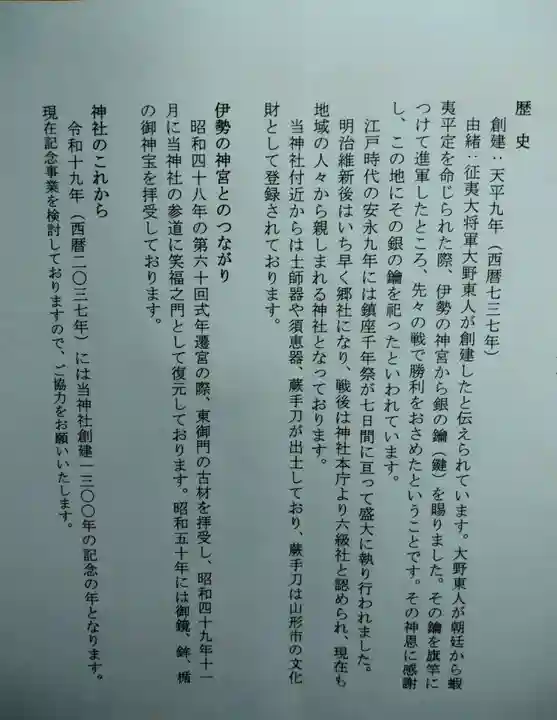 歴史
創建：天平九年（西暦七三七年）
由緒：征夷大将軍大野東人が創建したと伝えられています。大野東人が朝廷から蝦
夷平定を命じられた際、伊勢の神宮から銀の鑰（鍵）を賜りました。その鑰を旗竿に
つけて進軍したところ、先々の戦で勝利をおさめたということです。その神恩に感謝
し、この地にその銀の鑰を祀ったといわれています。
江戸時代の安永九年には鎮座千年祭が七日間に亘って盛大に執り行われました。
明治維新後はいち早く郷社になり、戦後は神社本庁より六級社と認められ、現在も
地域の人々から親しまれる神社となっております。
当神社付近からは土師器や須恵器、蕨手刀が出土しており、蕨手刀は山形市の文化
財として登録されております。
伊勢の神宮とのつながり
昭和四十八年の第六十回式年遷宮の際、東御門の古材を拝受し、昭和四十九年十一
月に当神社の参道に笑福之門として復元しております。昭和五十年には御鏡、鉾、楯
の御神宝を拝受しております。
神社のこれから
令和十九年（西暦二〇三七年）には当神社創建一三〇〇年の記念の年となります。
現在記念事業を検討しておりますので、ご協力をお願いいたします。